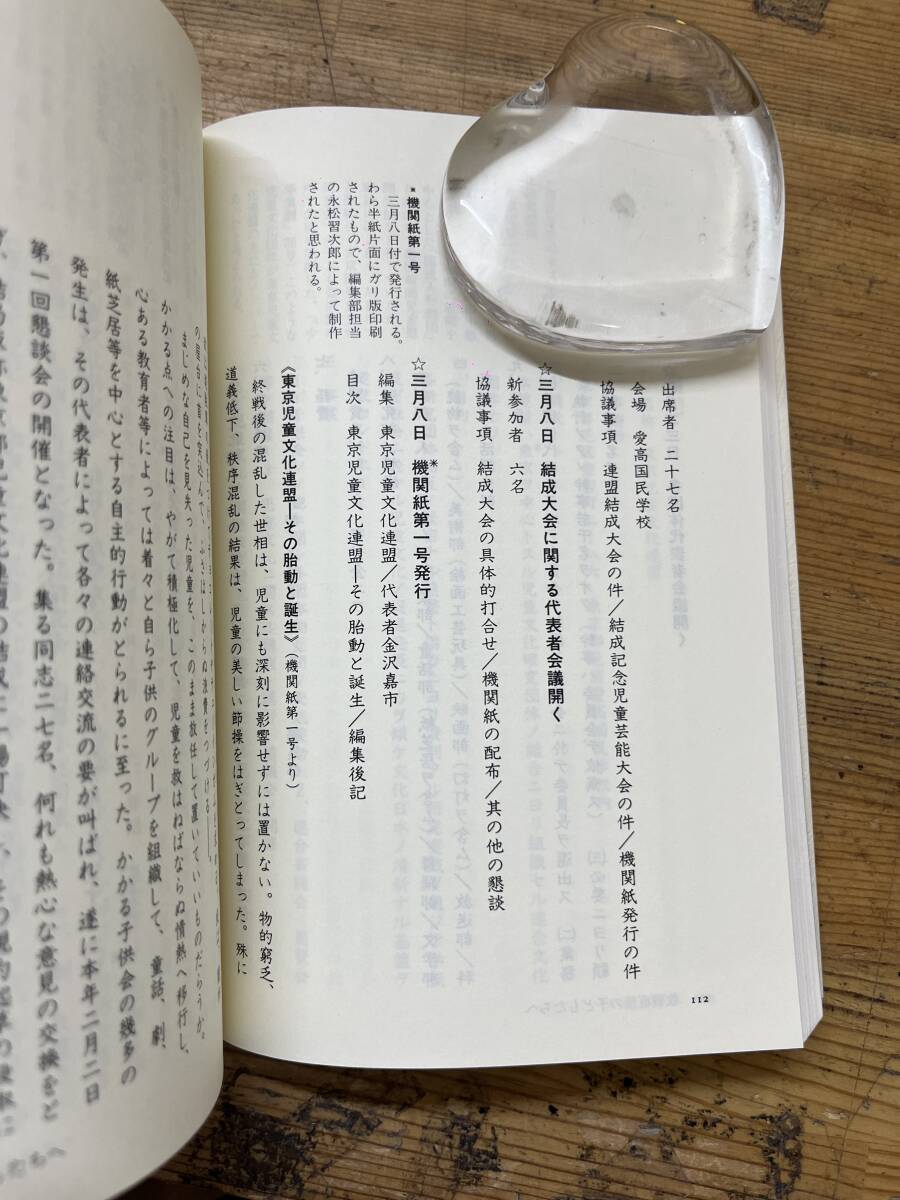 出席者 二十七名
会場 愛高国民学校
協議事項 連盟結成大会の件/結成記念児童芸能大会の件/機関紙発行の件
☆三月八日 結成大会に関する代表者会議開く
新参加者 六名
協議事項 結成大会の具体的打合せ/機関紙の配布/其の他の懇談
☆三月八日 機関紙第一号発行*
編集 東京児童文化連盟/代表者金沢嘉市
目次 東京児童文化連盟―その胎動と誕生/編集後記
《東京児童文化連盟―その胎動と誕生》(機関紙第一号より)
終戦後の混乱した世相は、児童にも深刻に影響せずには置かない。物的窮乏、
道義低下、秩序混乱の結果は、児童の美しい節操をはぎとってしまった。殊に
*機関紙第一号
三月八日付で発行される。
わら半紙片面にガリ版印刷
されたもので、編集部担当
の永松習次郎によって制作
されたと思われる。
112
の屋台に首を突込んで、ふさはしからぬ浪費をつづける――。
まじめな自己を見失った児童を、このまま放任して置いていいものだらうか。
かかる点への注目は、やがて積極化して、児童を救はねばならぬ情熱へ移行し、
心ある教育者等によっては着々と自ら子供のグループを組織して、童話、劇、
紙芝居等を中心とする自主的行動がとられるに至った。かかる子供会の幾多の
発生は、その代表者によって各々の連絡交流の要が叫ばれ、遂に本年二月二日
第一回懇談会の開催となった。集る同志二七名、何れも熱心な意見の交換をと